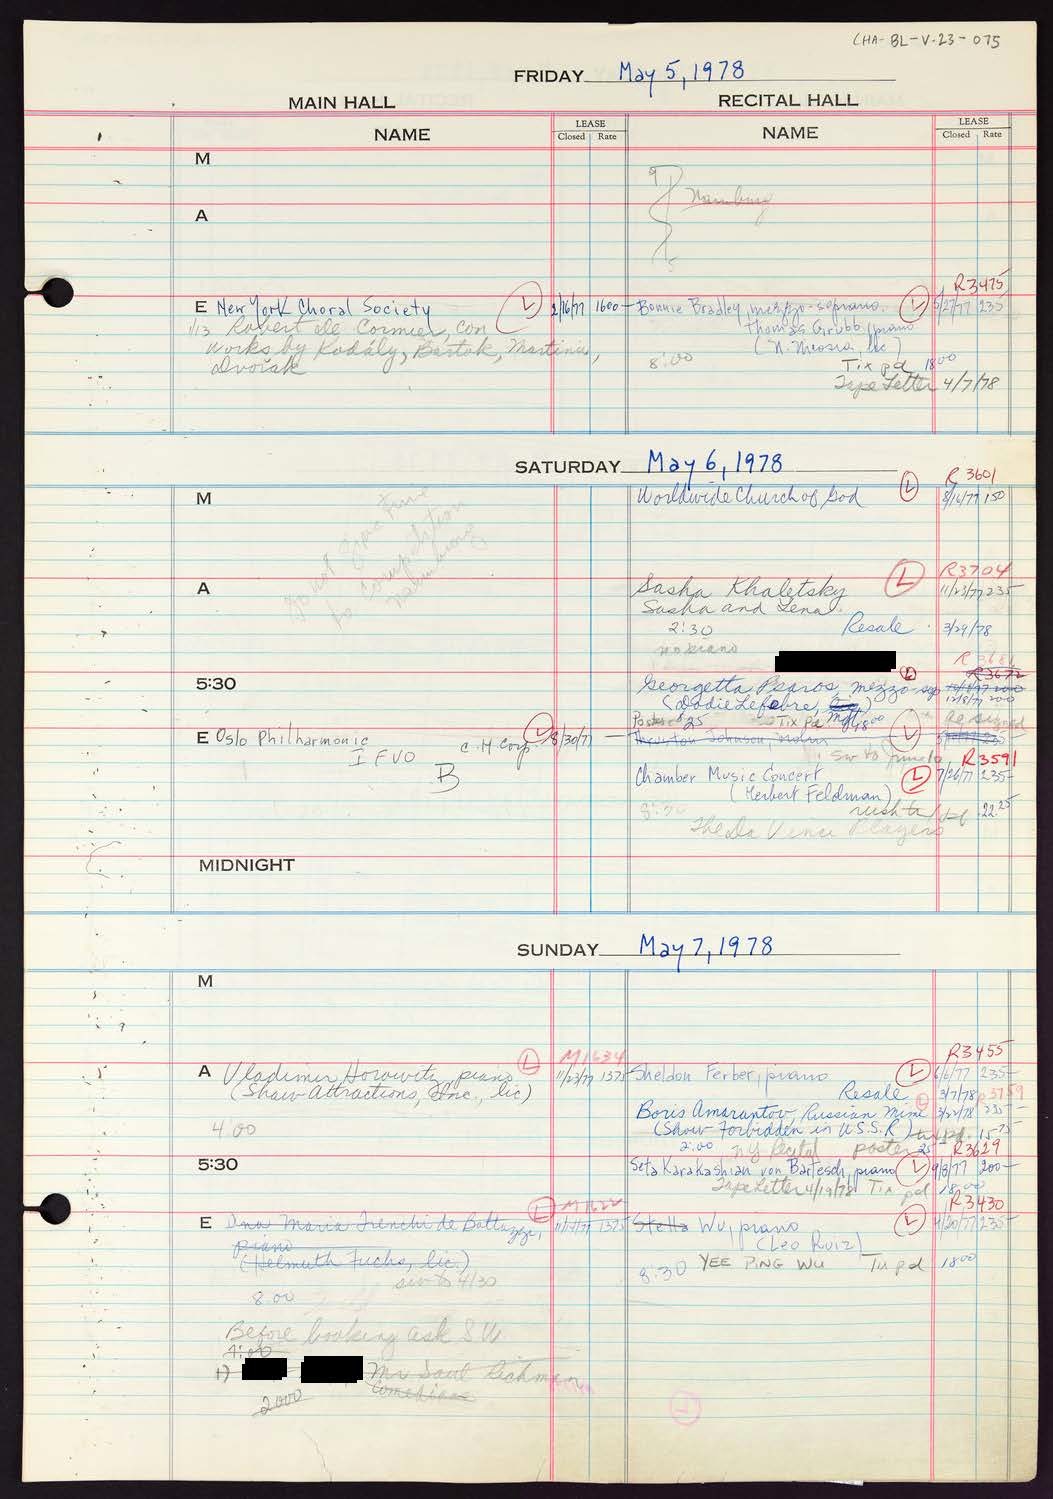 CHA-BL-V-23-075
FRIDAY May 5, 1978
MAIN HALL
RECITAL HALL
NAME
LEASE
Closed Rate
NAME
LEASE
Closed Rate
M
9
Naumburg
5
A
R3475
E New York Choral Society L 2/16/77 1600-
Bonnie Bradley, mezzo-soprano. L 5/27/77 235
1/13 Robert de Cormier, con
Thomas Grubb, piano
works by Kodály, Bartok, Martinu,
(N. Nicosia, lic)
Dvořák
8:00
Tix pd 18 00
Tape Letter 4/7/78
SATURDAY May 6, 1978
R 3601
M
Worldwide Church of God L 8/16/77 150
do not give time
to competition
Naumburg
R3704
A
Sasha Khaletsky L 11/23/77 235-
Sasha and Lena
2:30 Resale 3/29/78
no piano
R 3681
R3672
5:30
Georgetta Psaros, mezzo-sop L
12/8/77 200
(Dodie Lefebre, mgr)
Poster $25 Tix Pd 18 00
as signed
E Oslo Philharmonic C. H Corp L 8/30/77 -
Thornton Johnson, violin L
I FVO
B
sw to June 10
R3591
Chamber Music Concert L 7/26/77 235-
(Herbert Feldman)
8:30 rush tix pd 22 25
The Da Vinci Players
MIDNIGHT
SUNDAY May 7, 1978
M
M1634
R3455
A Vladimir Horowitz, piano L 11/23/77 1375
Sheldon Ferber, piano L 6/6/77 235-
(Shaw Attractions, Inc., lic)
Resale 3/7/78 R3759
Boris Amarantov, Russian Mime L 3/22/78 235-
(Show Forbidden in U.S.S.R.) tix pd. 15 75
4:00
2:00 NY Recital poster 25
R3629
5:30
Seta Karakashian von Bartesch, piano L 9/8/77 200-
Tape Letter 4/19/78 Tix pd 18.00
M1622
R3430
E Dna Maria Trenchi de Bottazzi, L 11/1/77 1375
Stella Wu, piano L 4/20/77 235-
piano
(Leo Ruiz)
(Helmuth Fuchs, lic.)
8:30 YEE PING WU Tix pd 18 00
sw to 4/30
8:00
Before booking ask S W
4:00
1) Mr Saul Richman
2000
L